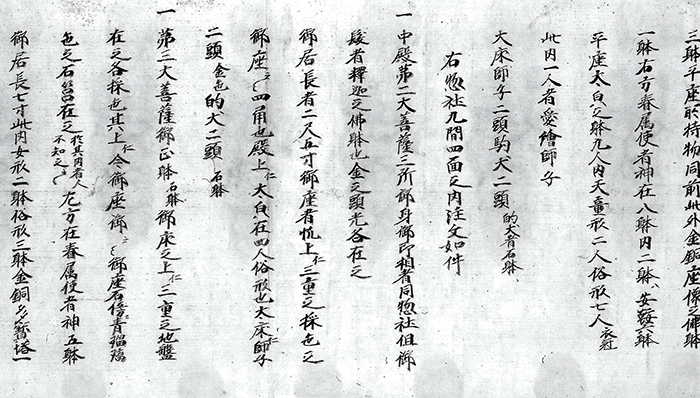 三躰平座於持物同前此外金銅座像之佛躰
一躰右方眷属使者神在八躰内二躰女鞍六躰
平座太白之躰九人内天童形二人俗形七人衣紅
此内一人者愛繪師子
大床師子二頭駒犬二頭的犬者石躰
右惣社九間四面之内注文如件
一中殿第二大善薩三所御身御即相者同惣社但御
髪者釋迦之佛躰也金之頭光各在之
御居長者二尺五寸御座者忱上仁三重之採色之
御座〻四角也殿上仁太白在四人俗形也大床師子仁
二頭金色的犬二頭石躰
一第三大善薩御正躰石躰御床之上仁三重之地盤
在之各採色其上仁今御座御〻御座石像青瑠璃
色之石莒在之於其内者人不知之左方在眷属使者神五躰
御居長七寸此内女形二躰俗形三躰金銅多寳塔一